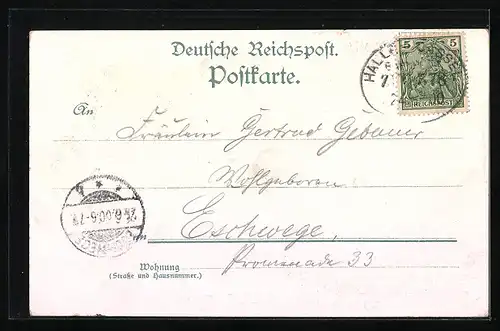 Deutsche Reichspost.
Postkarte.
5 5
REICHSPOST
An
Fräulein Gertrud Gebauer
Wohlgeboren
in Eschwege,
Promenade 33
Wohnung
(Straße und Hausnummer.)